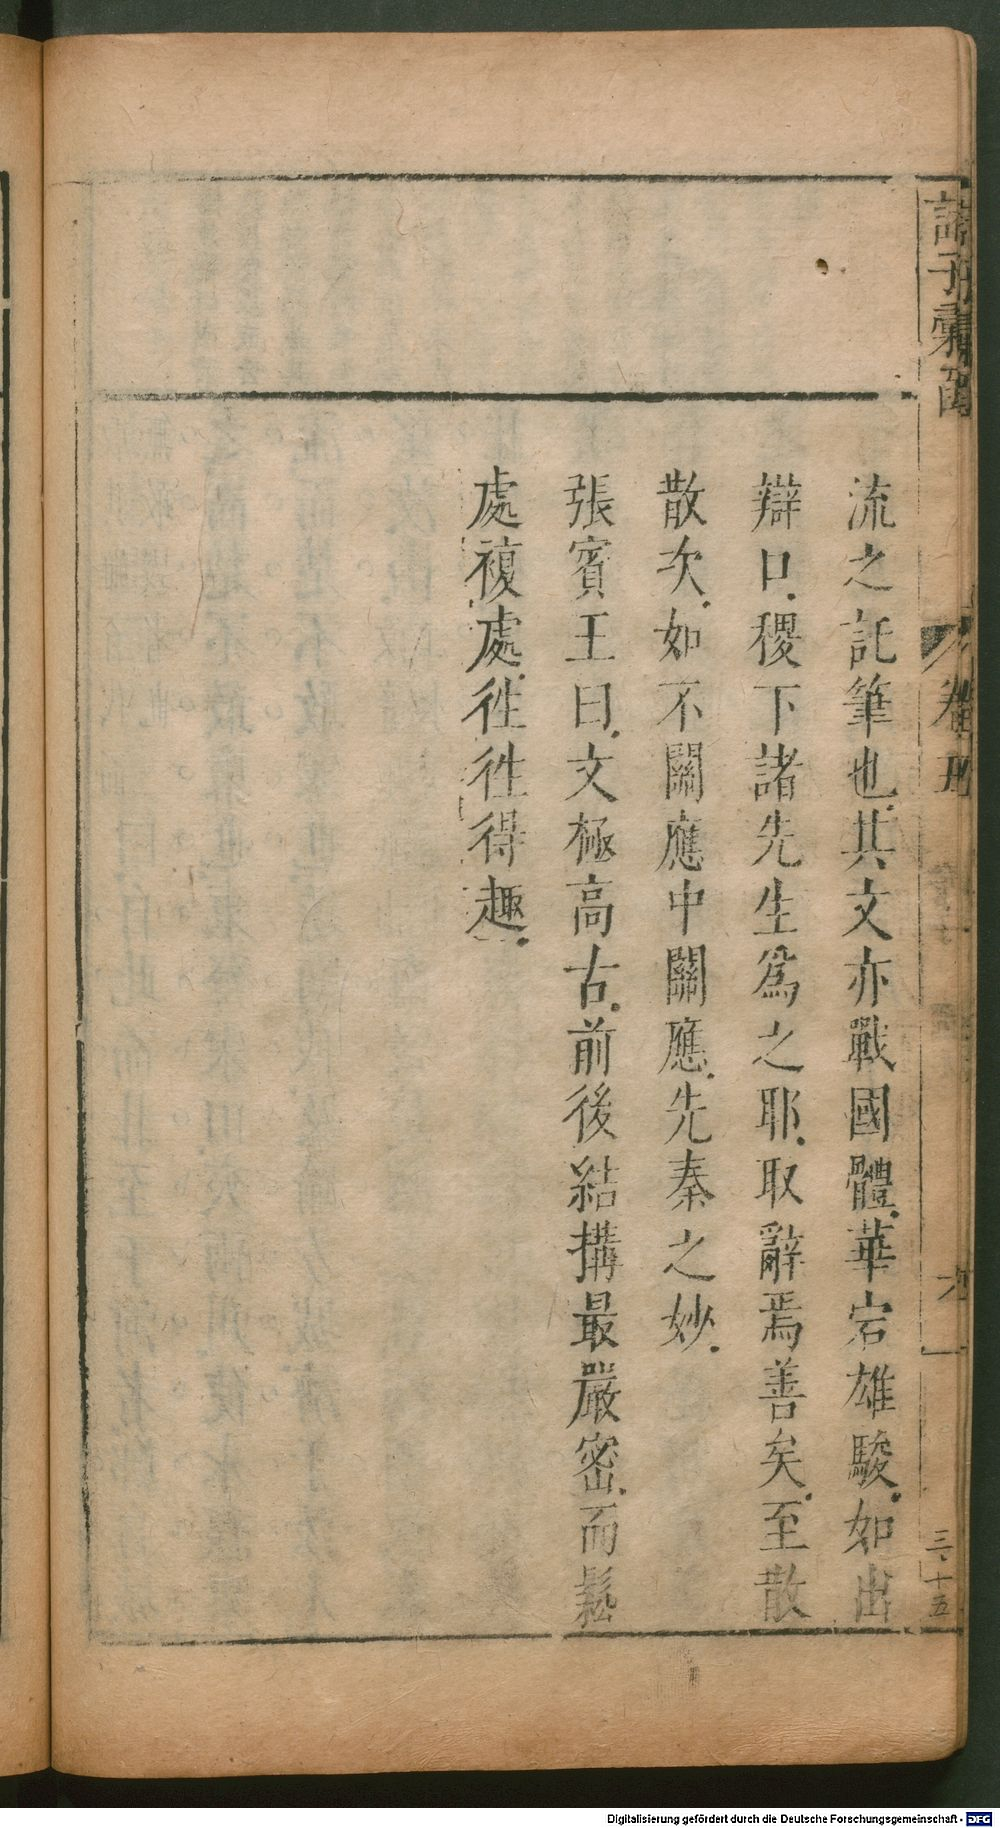 流之託筆也.其文亦戰國體.華宕雄駿.如出
辯口.稷下諸先生爲之耶.取辭焉善矣.至散
散次.如不關應中關應.先秦之妙.
張賓王曰.文極高古.前後結搆最嚴密.而鬆
處複處.徃徃得趣.
諸子彙函
卷五
三.十五
Digitalisierung gefördert durch die Deutsche Forschungsgemeinschaft - DFG